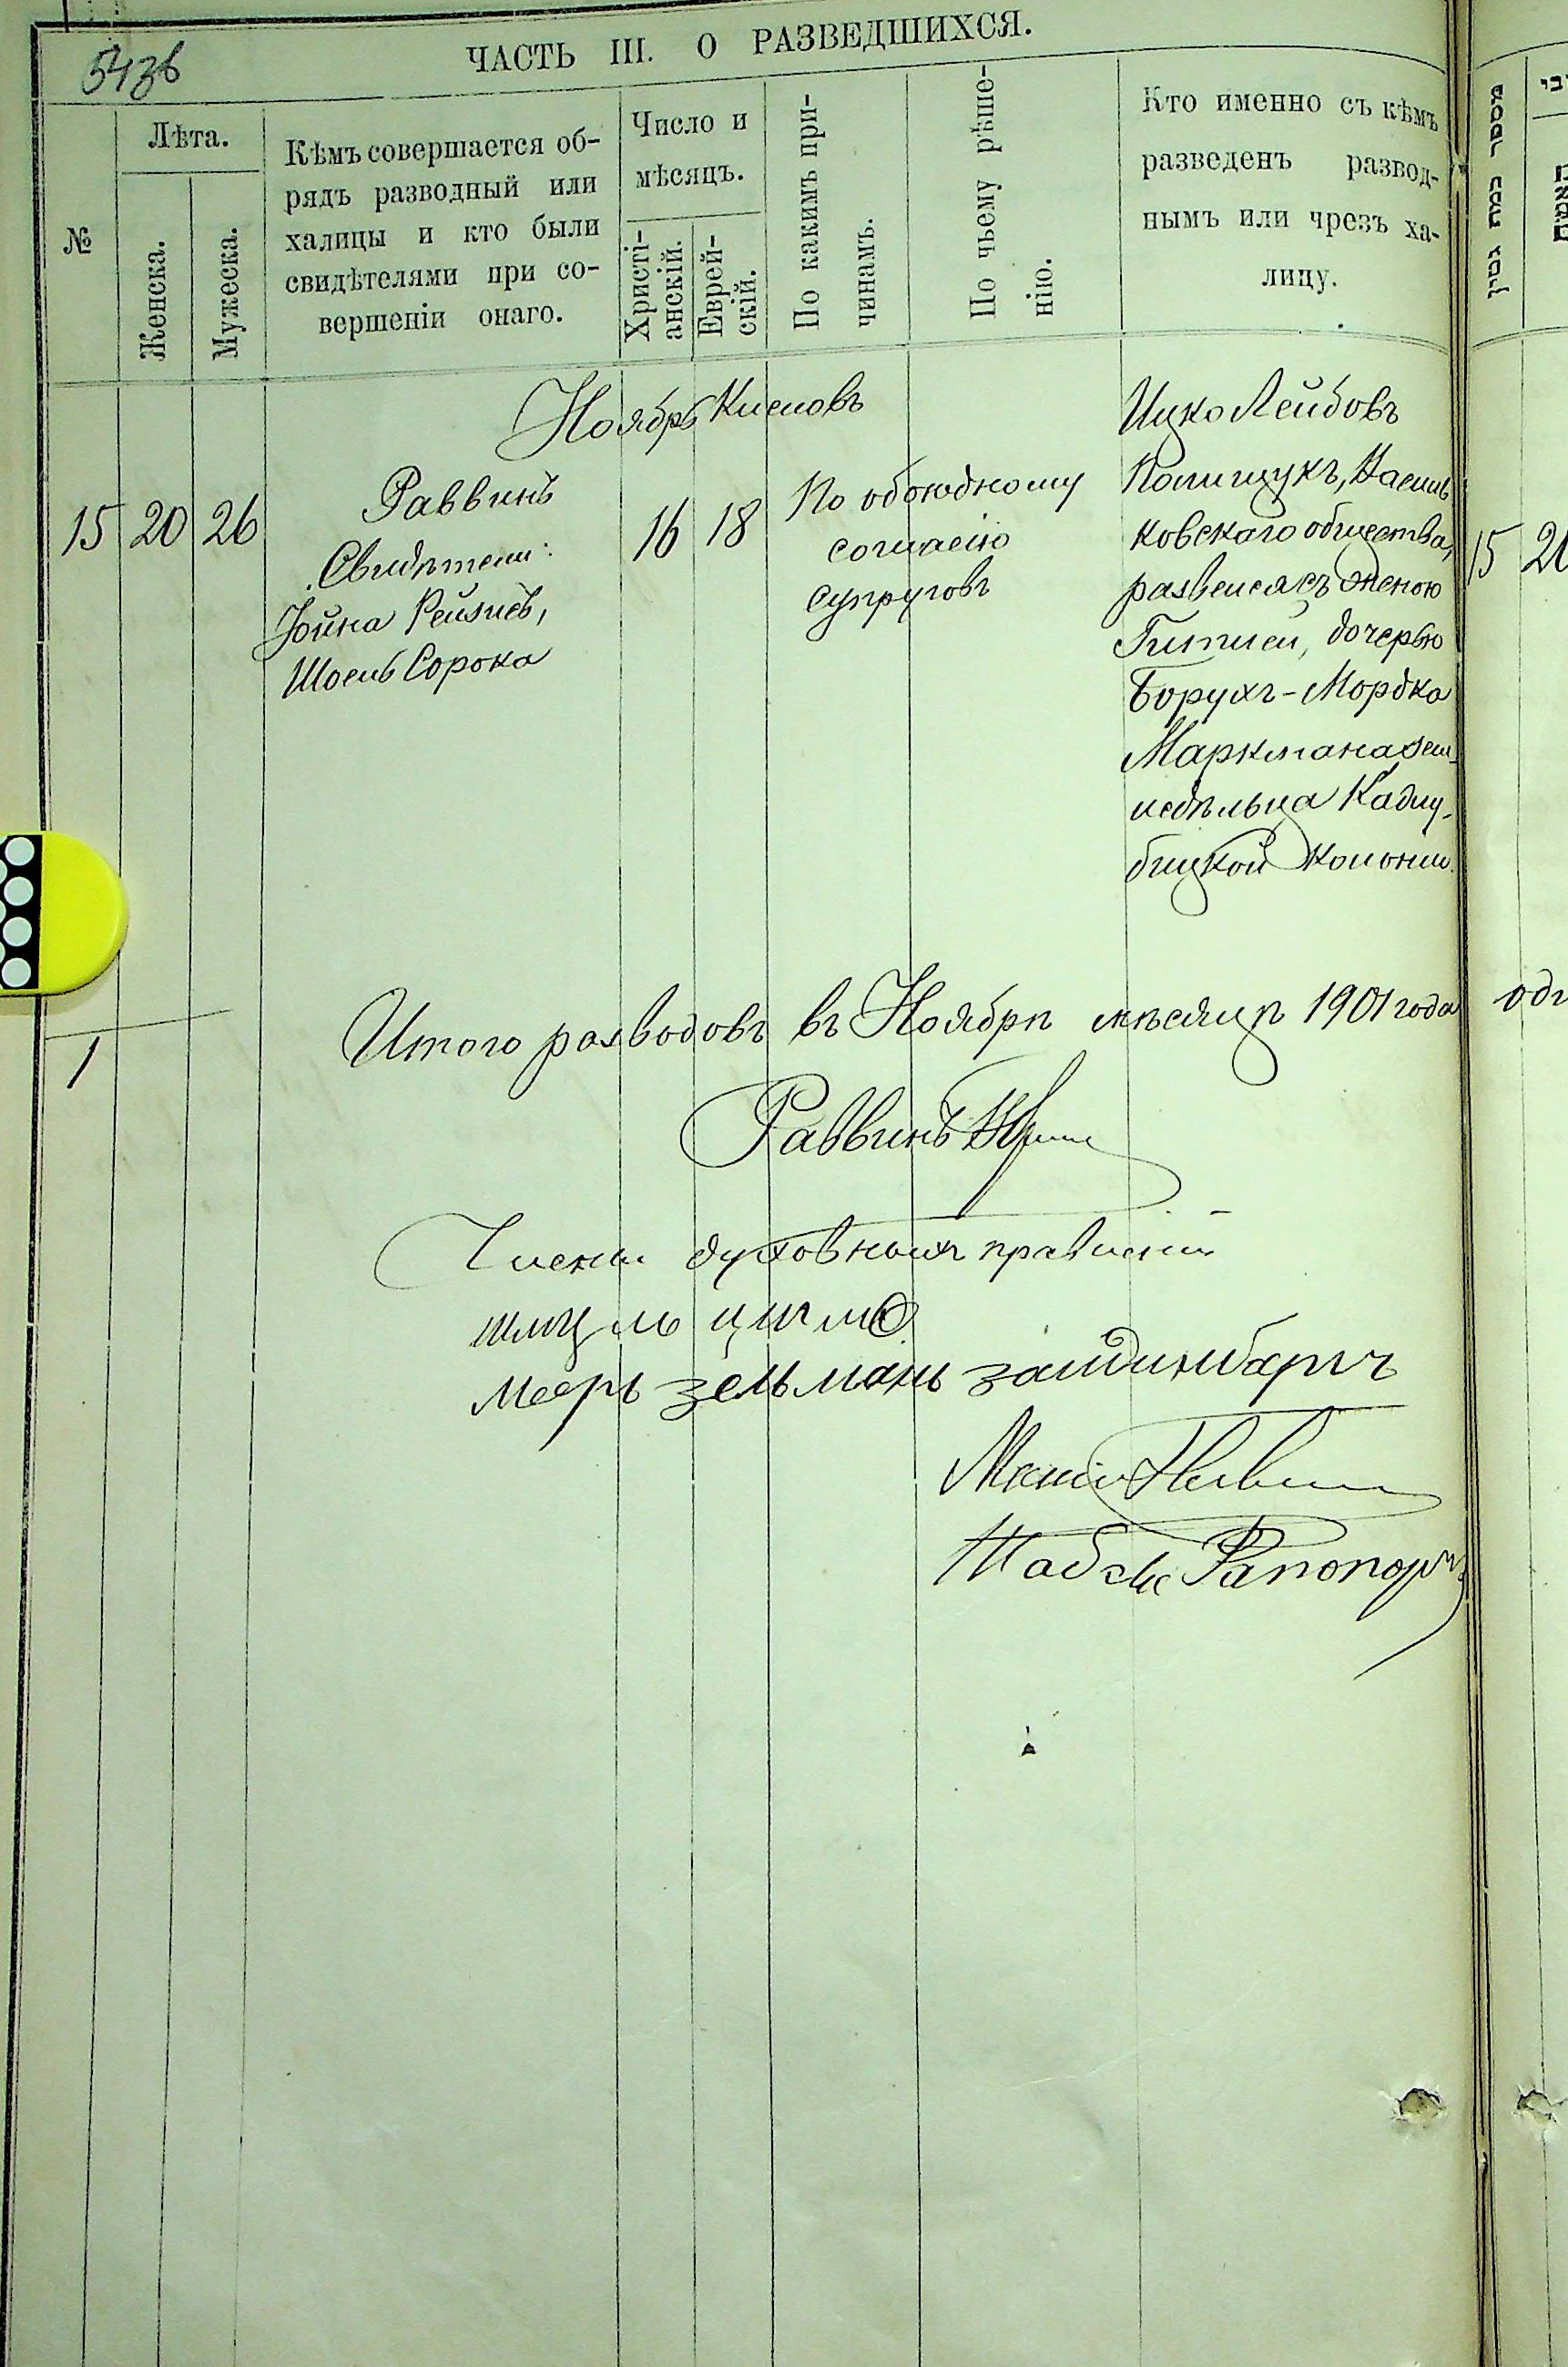 543б
ЧАСТЬ III. О РАЗВЕДШИХСЯ.
№
Лѣта.
Женска.
Мужеска.
Кѣмъ совершается об-
рядъ разводный или
халицы и кто были
свидѣтелями при со-
вершеніи онаго.
Число и
мѣсяцъ.
Христі-
анскій.
Еврей-
скій.
По какимъ при-
чинамъ.
По чьему рѣше-
нію.
Кто именно съ кѣмъ
разведенъ развод-
нымъ или чрезъ ха-
лицу.
מספר כמת גטין
Ноябрь Кислевъ
15 20 26
Раввинъ
Свидѣтели:
Іойна Рейзисъ,
Шоель Сорока
16 18
По обоюдному
согласію
супруговъ
Ицко Лейбовъ
Полищукъ, Василь
ковскаго общества,
развелся съ женою
Гитлей, дочерью
Борухъ-Мордка
Маркмана зем-
ледѣльца Кадлу-
бицкой колоніи.
15 20
1
Итого разводовъ въ Ноябрѣ мѣсяцѣ 1901 года
Раввинъ
Члены духовныхъ правленій
меэръ зельманъ
Рапопортъ